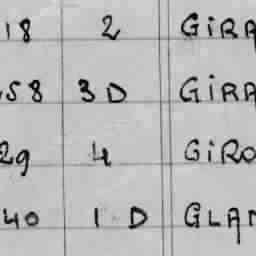 18 2 GiRA
58 3 D GiRA
29 4 GiRO
40 1 D GLAM